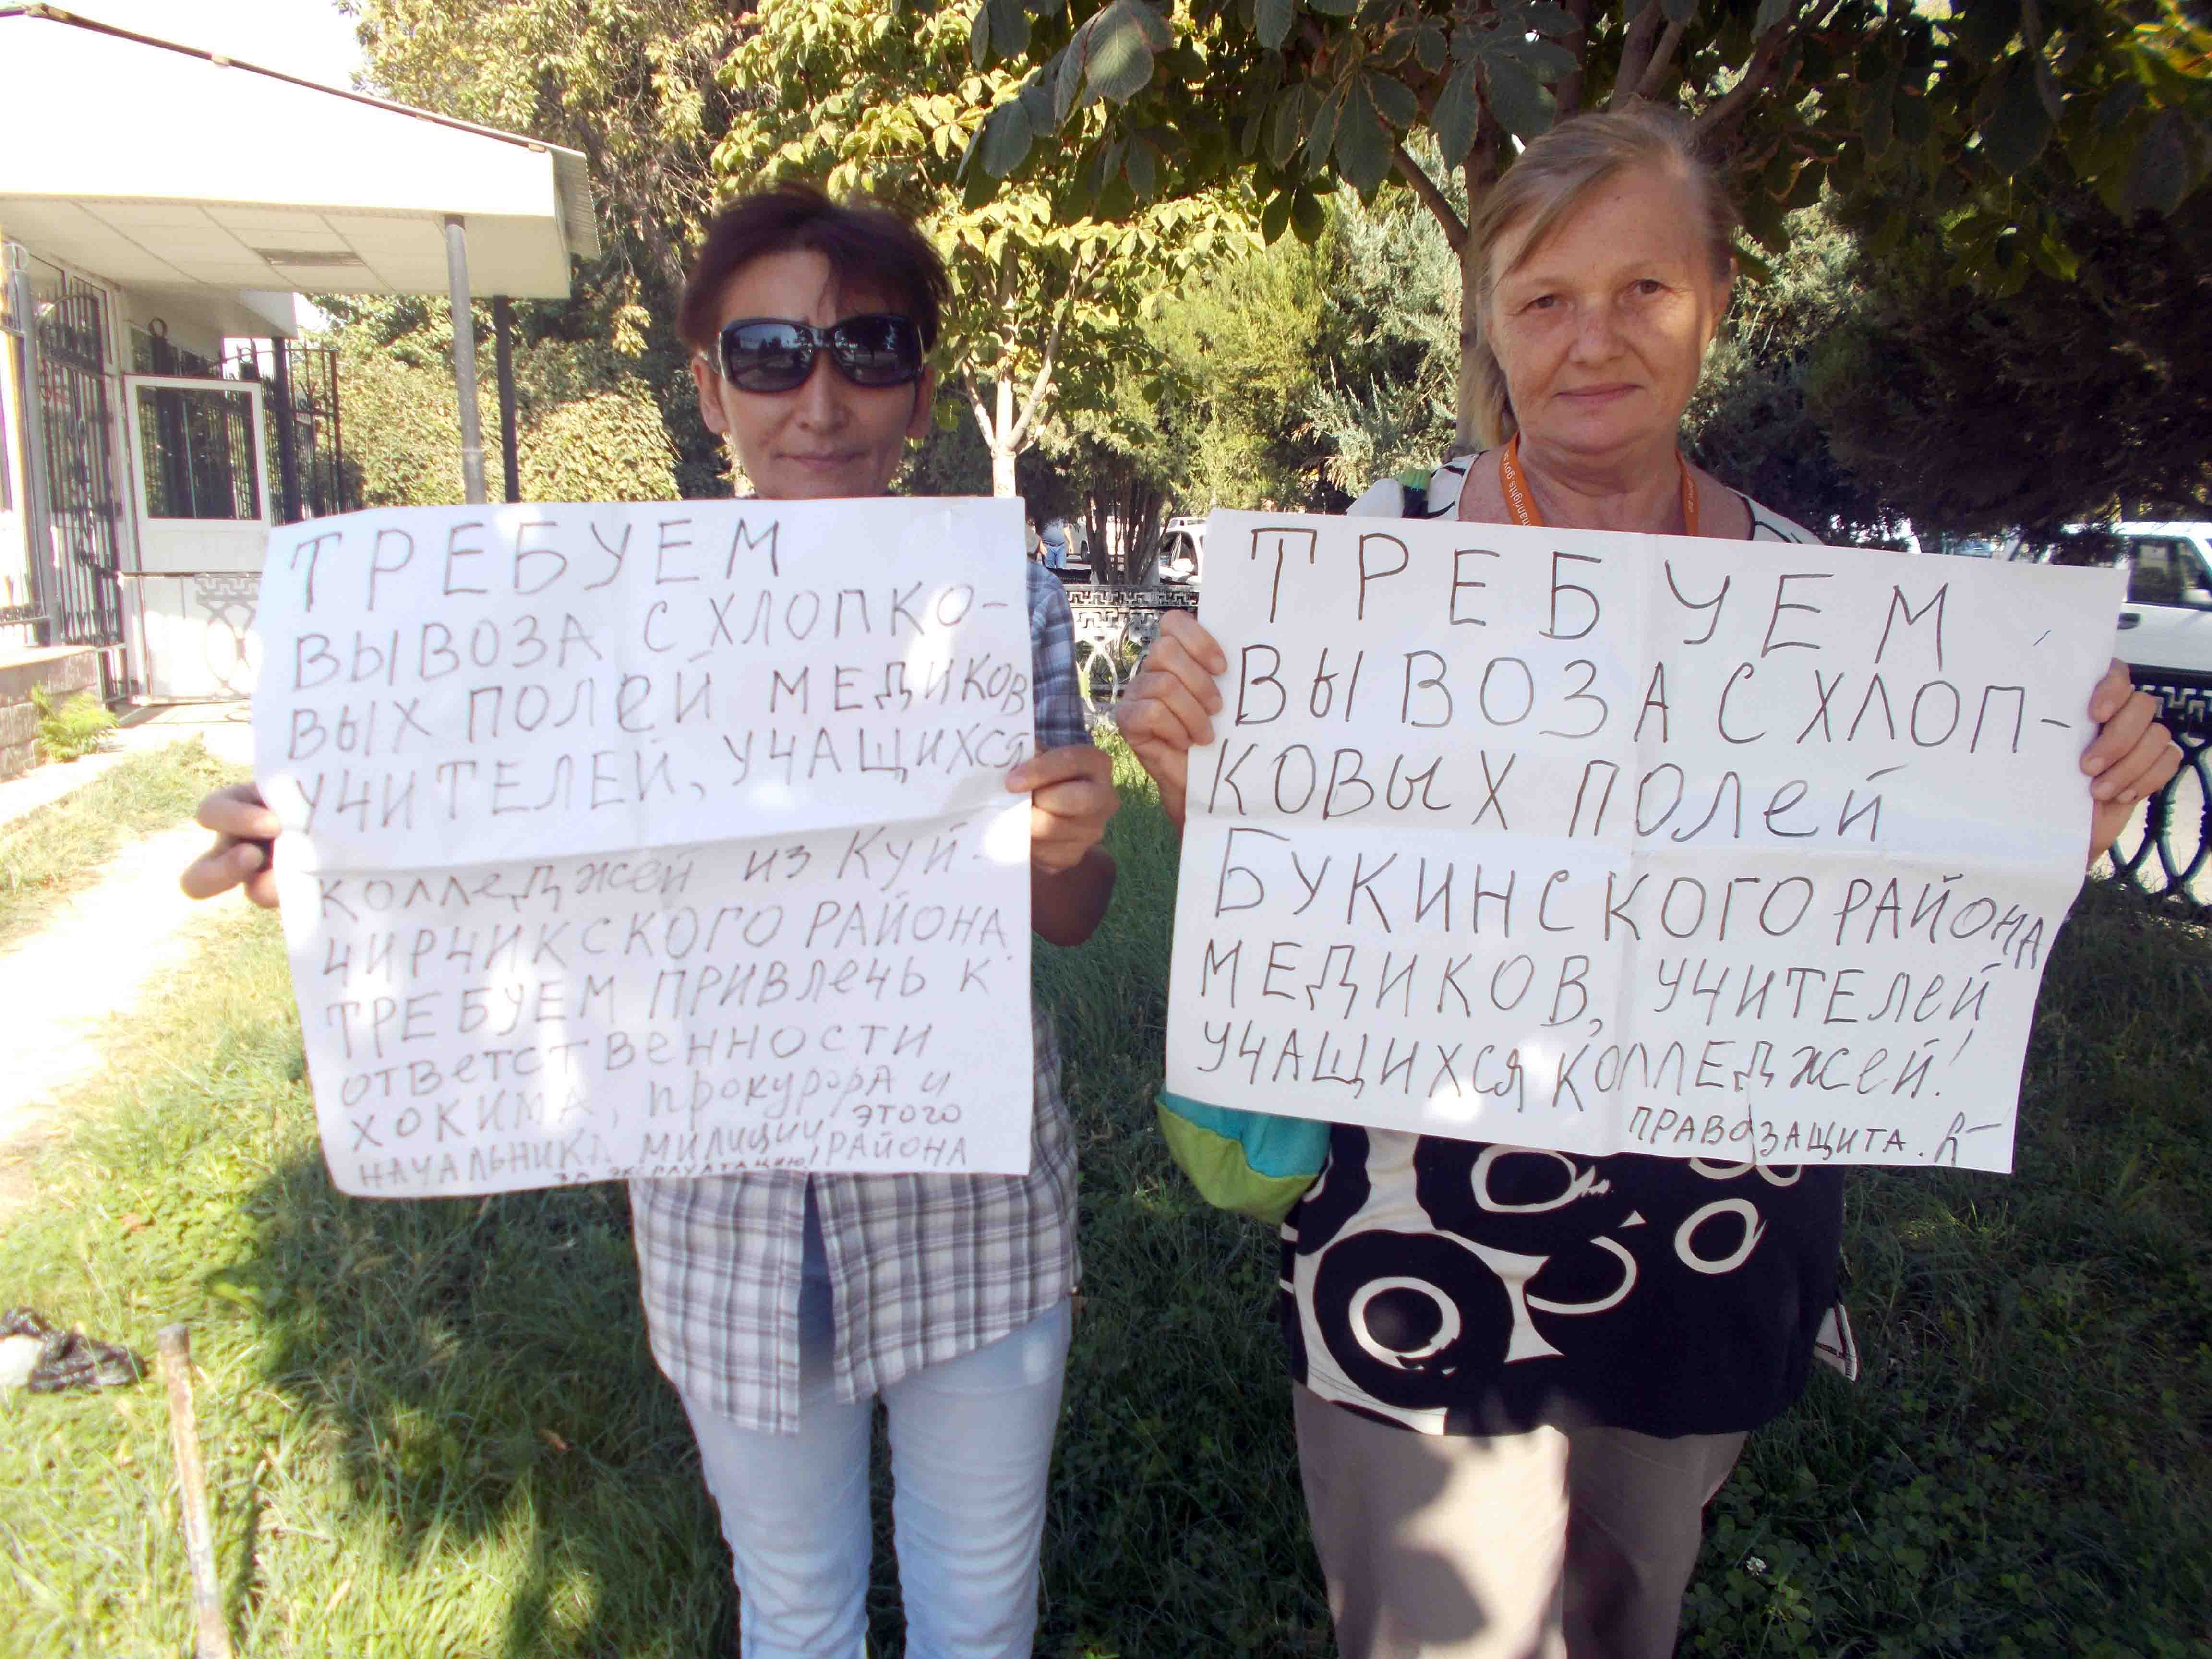 ТРЕБУЕМ
ВЫВОЗА С ХЛОПКО-
ВЫХ ПОЛЕЙ МЕДИКОВ
УЧИТЕЛЕЙ, УЧАЩИХСЯ
КОЛЛЕДЖЕЙ ИЗ КУЙ-
ЧИРЧИКСКОГО РАЙОНА.
ТРЕБУЕМ ПРИВЛЕЧЬ К
ОТВЕТСТВЕННОСТИ
ХОКИМА, ПРОКУРОРА И
НАЧАЛЬНИКА МИЛИЦИИ ЭТОГО
РАЙОНА
ЗА ЭКСПЛУАТАЦИЮ!
ТРЕБУЕМ
ВЫВОЗА С ХЛОП-
КОВЫХ ПОЛЕЙ
БУКИНСКОГО РАЙОНА
МЕДИКОВ, УЧИТЕЛЕЙ
УЧАЩИХСЯ КОЛЛЕДЖЕЙ!
ПРАВОЗАЩИТА.